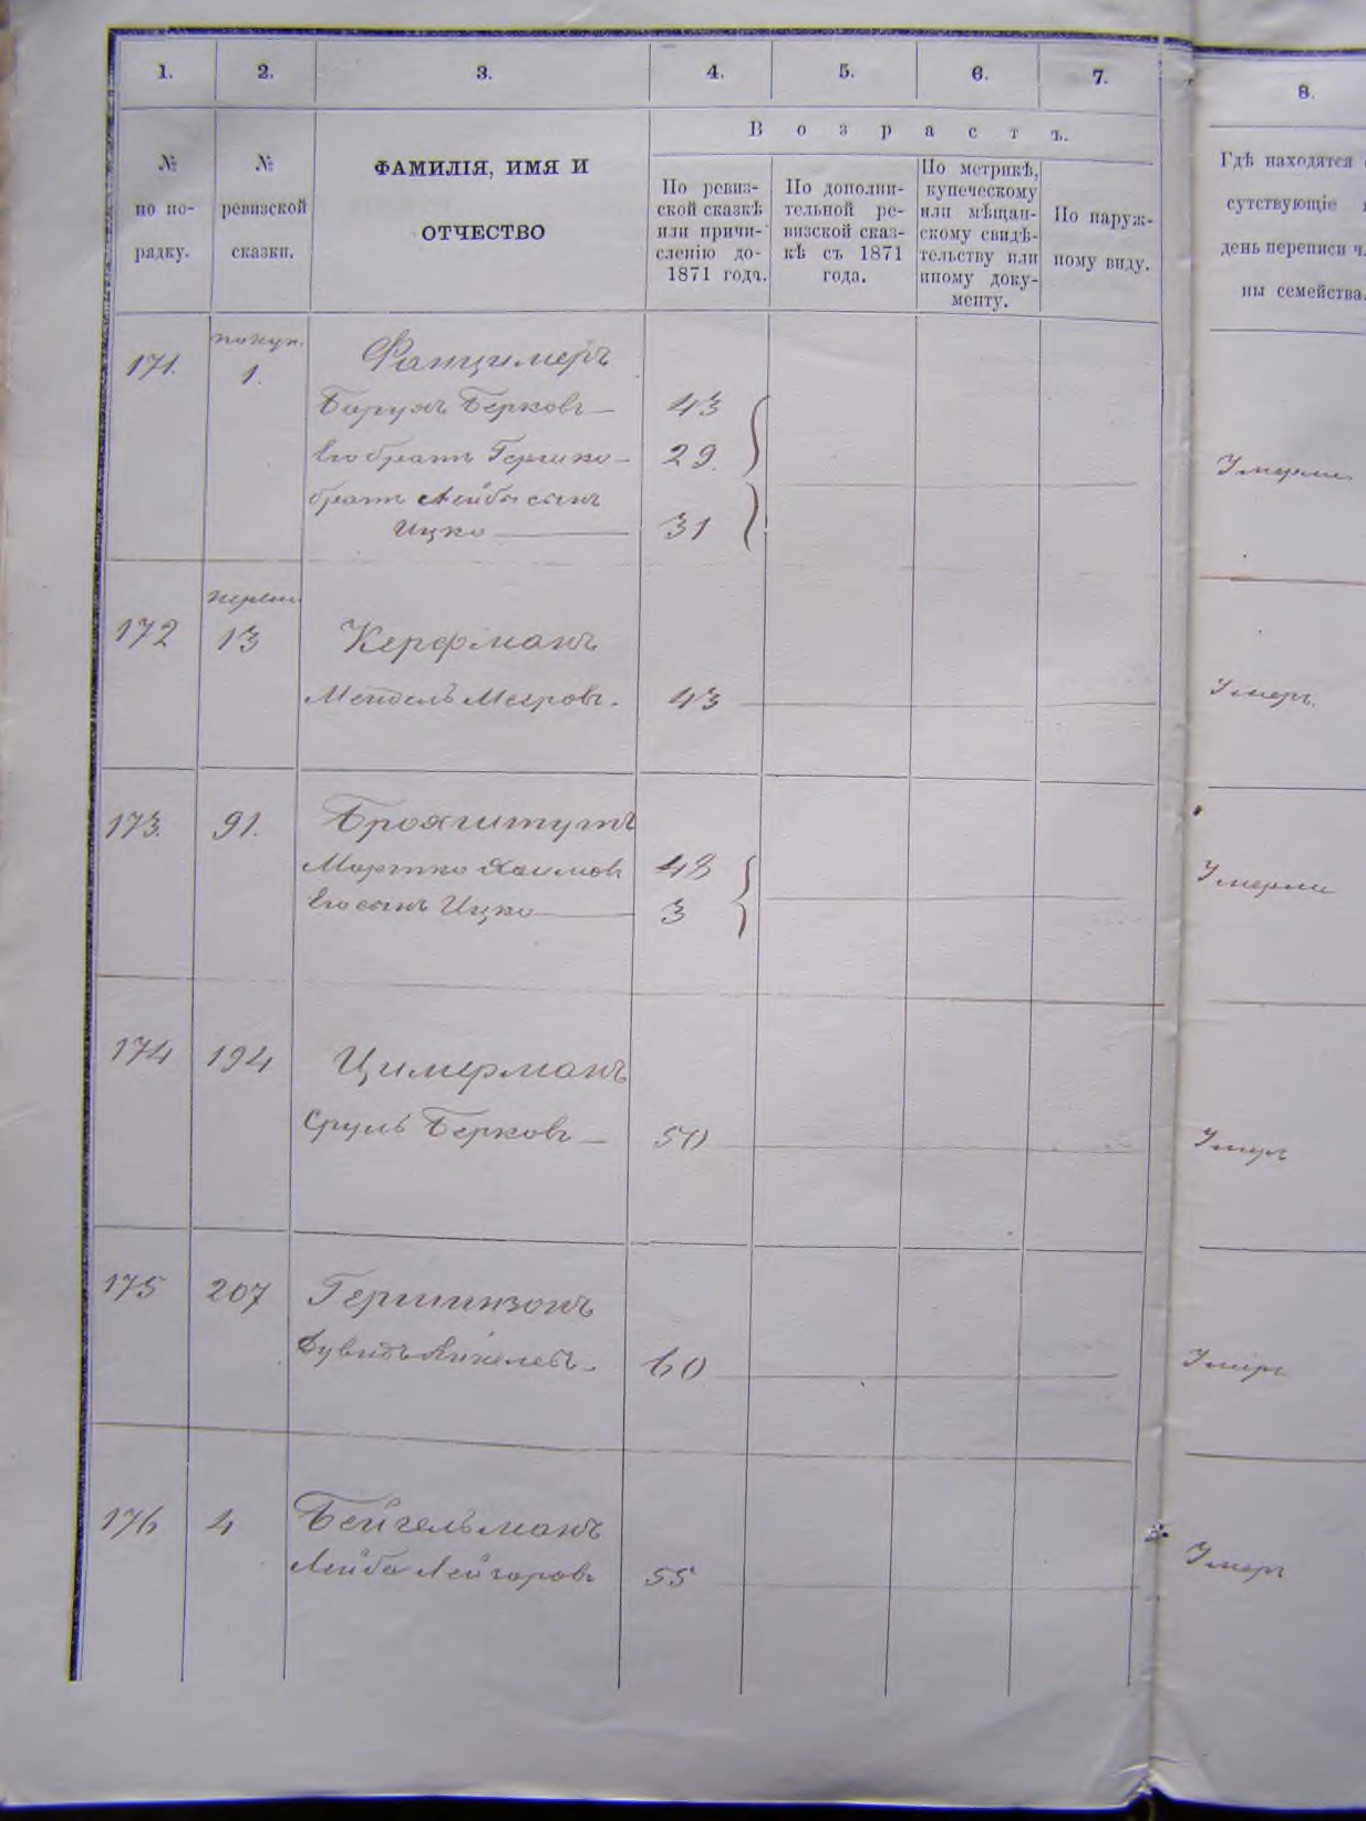 1. 2. 3. 4. 5. 6. 7. 8.
№ по по-рядку.
№ ревизской сказки.
ФАМИЛІЯ, ИМЯ И
ОТЧЕСТВО
Возрастъ.
По ревиз-
ской сказкѣ
или причи-
сленію до
1871 года.
По дополни-
тельной ре-
визской сказ-
кѣ съ 1871
года.
По метрикѣ,
купеческому
или мѣщан-
скому свидѣ-
тельству или
иному доку-
менту.
По наруж-
ному виду.
Гдѣ находятся
сутствующіе
день переписи
ны семейства.
171. 1.
Борухъ Берковъ 43
Его братъ Гершко 29. Умерли
братъ Лейба сынъ
Ицко 31
172 13 Керфманъ
Мендель Мееровъ. 43 Умеръ.
173. 91.
Мортко Хаимовъ 48 Умерли
Его сынъ Ицко 3
174 194 Цимерманъ
Сруль Берковъ 50 Умеръ
175 207 Гершинзонъ
Дувидъ 60 Умеръ
176 4 Бейгельманъ
Лейба Лейзоровъ 55 Умеръ